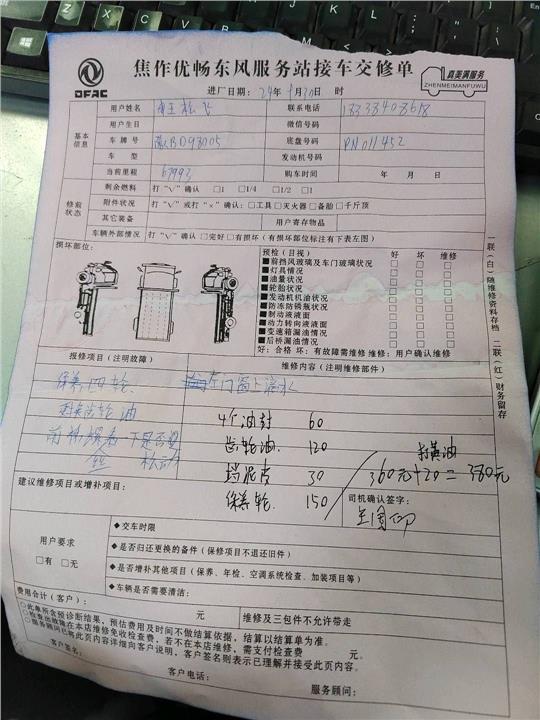 DFAC
焦作优畅东风服务站接车交修单
真美满服务
ZHENMEIMANFUWU
进厂日期：24年 月30日 时
基本信息
用户姓名
联系电话
用户生日 微信号码
车牌号 底盘号码 PN011452
车型 发动机号码
当前里程 67993 购车时间 年 月 日
修前状态
剩余燃料 打“√”确认 □1 □1/4 □1/2 □1
附件状况 打“√”或打“×”确认：□工具□灭火器□备胎□千斤顶
其它装备 用户寄存物品
车辆外部情况 打“√”确认 □完好□有损坏（有损坏部位标注有下表左图）
损坏部位：
预检（目视） 好 坏 维修
■前挡风玻璃及车门玻璃状况 □ □ □
■灯具情况 □ □ □
■油量状况 □ □ □
■轮胎状况 □ □ □
■发动机机油状况 □ □ □
■防冻防锈瓶状况 □ □ □
■制动液液面 □ □ □
■动力转向液液面 □ □ □
■变速箱漏油情况 □ □ □
■后桥漏油情况 □ □ □
好：合格 坏：有故障需维修 维修：用户确认维修
报修项目（注明故障） 维修内容（注明维修部件）
保养四轮 左门窗上漏水
齿轮油
4个油封 60
齿轮油 120
30
保养轮 150
打黄油
360元+20=380元
建议维修项目或增补项目：
司机确认签字：
用户要求
□有 □无
◆交车时限
◆是否归还更换的备件（保修项目不退还旧件）
◆是否增补其他项目（保养、年检、空调系统检查、加装项目等）
◆车辆是否需要清洁：
费用合计（客户）： 元 维修及三包件不允许带走
○此单所含预诊断结果，预估费用及时间不做结算依据，结算以结算单为准。
○检查出故障在本店维修免收检查费，若不在本店维修，需支付检查费 元。
○服务顾问已将此页内容详细向客户说明，客户签名则表示已理解并接受此页内容。
客户签名： 客户电话： 服务顾问：
一联（白）随维修资料存档 二联（红）财务留存